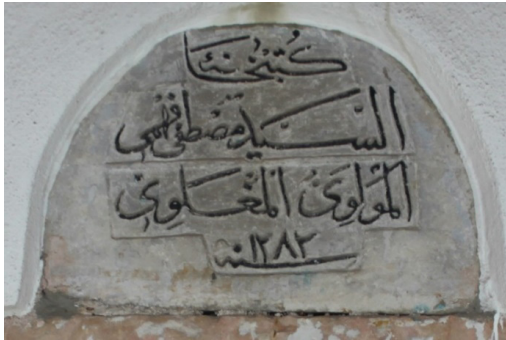 كتبخانۀ
السيد مصطفى فهمى
المولوى المغلوى
سنه ١٢٨٢